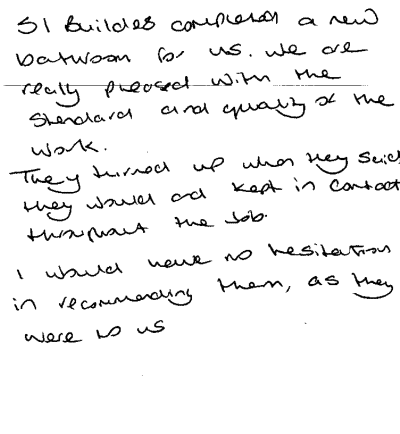 SI Builders completed a new
bathroom for us. We are
really pleased with the
standard and quality of the
work.
They turned up when they said
they would and kept in contact
throughout the job.
I would have no hesitation
in recommending them, as they
were to us